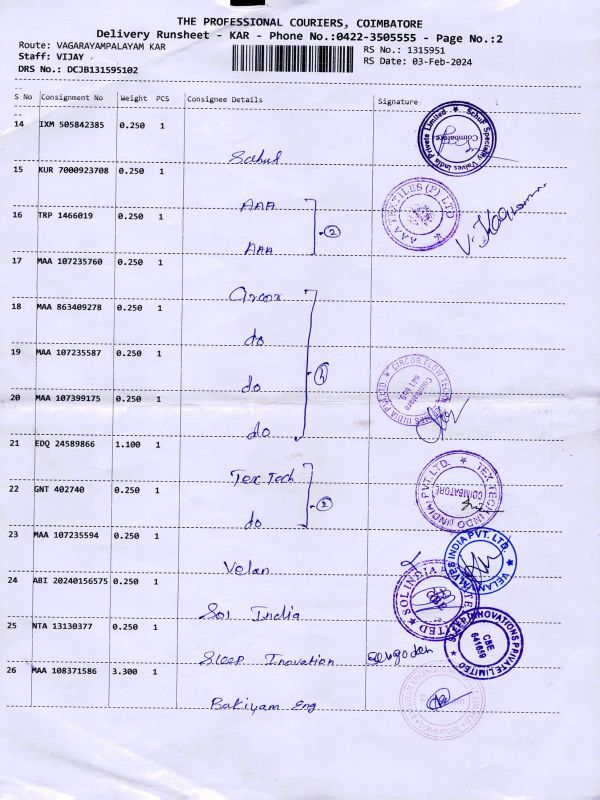 THE PROFESSIONAL COURIERS, COIMBATORE
Delivery Runsheet - KAR - Phone No.:0422-3505555 - Page No.:2
Route: VAGARAYAMPALAYAM KAR
RS No.: 1315951
Staff: VIJAY
RS Date: 03-Feb-2024
DRS No.: DCJB131595102
S No Consignment No Weight PCS Consignee Details Signature
14 IXM 505842385 0.250 1
Schuf
Schuf Specialty Valves India Private Limited
Coimbatore
15 KUR 7000923708 0.250 1
AAA
AAA TEXTILES (P) LTD
16 TRP 1466019 0.250 1
AAA
2
17 MAA 107235760 0.250 1
Circor
18 MAA 863409278 0.250 1
do
19 MAA 107235587 0.250 1
do
4
CIRCOR FLOW TECH
INDIA PVT LTD
Coimbatore
641
20 MAA 107399175 0.250 1
do
21 EDQ 24589866 1.100 1
Tex Tech
TEX-TECH INDO (INDIA) PVT. LTD.
COIMBATORE
22 GNT 402740 0.250 1
do
2
23 MAA 107235594 0.250 1
Velan
VELAN VALVES INDIA PVT. LTD.
24 ABI 20240156575 0.250 1
Sol India
SOL INDIA
LIMITED
25 NTA 13130377 0.250 1
Sleep Inovation
INNOVATIONS PRIVATE LIMITED
CBE
641659
26 MAA 108371586 3.300 1
Bakiyam Eng